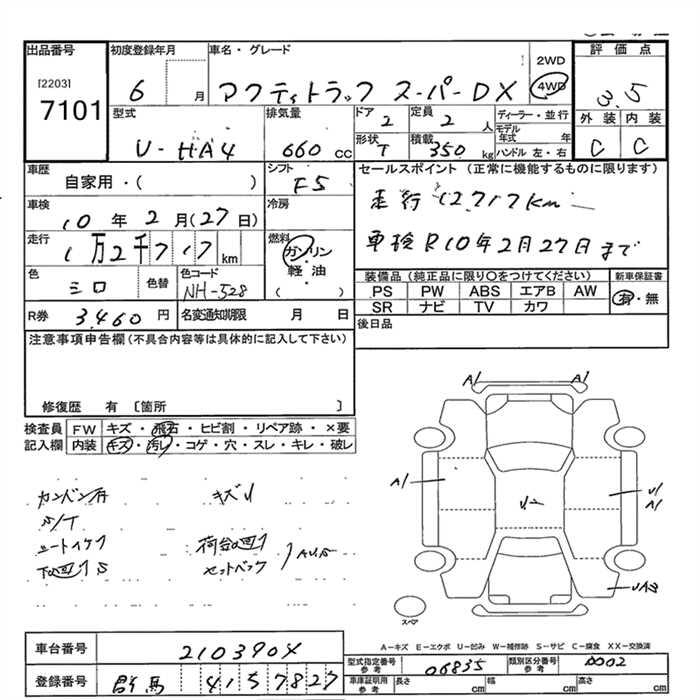 出品番号 初度登録年月 車名・グレード
[2203] 7101 6 月 アクティトラック スーパーDX 2WD 4WD
評価点 3.5
外装 内装
C C
型式 U-HA4 排気量 660 cc
ドア 2 定員 2 人 ディーラー・並行
形状 T 積載 350 kg モデル年式 年
ハンドル 左・右
車歴 自家用・( ) シフト F5
車検 10年2月(27日) 冷房
走行 1万2千717km 燃料 ガソリン・軽油 ( )
色 シロ 色替 色コード NH-528
R券 3,460円 名変通知期限 月 日
セールスポイント (正常に機能するものに限ります)
走行 12,717km
車検R10年2月27日まで
装備品(純正品に限り○をつけてください) 新車保証書
PS PW ABS エアB AW 有・無
SR ナビ TV カワ
後日品
注意事項申告欄(不具合内容等は具体的に記入して下さい)
修復歴 有 〔箇所 〕
検査員 FW キズ・飛石・ヒビ割・リペア跡・×要
記入欄 内装 キズ・汚レ・コゲ・穴・スレ・キレ・破レ
キズU
S/T
荷台
下回りS
A1 A1
A1 U A1
スペア
A-キズ E-エクボ U-凹み W-補修跡 S-サビ C-腐食 XX-交換済
車台番号 2103904
登録番号 群馬 41 57827
型式指定番号 参考 06835 類別区分番号 参考 0002
車庫証明用 参考 長さ cm 幅 cm 高さ cm